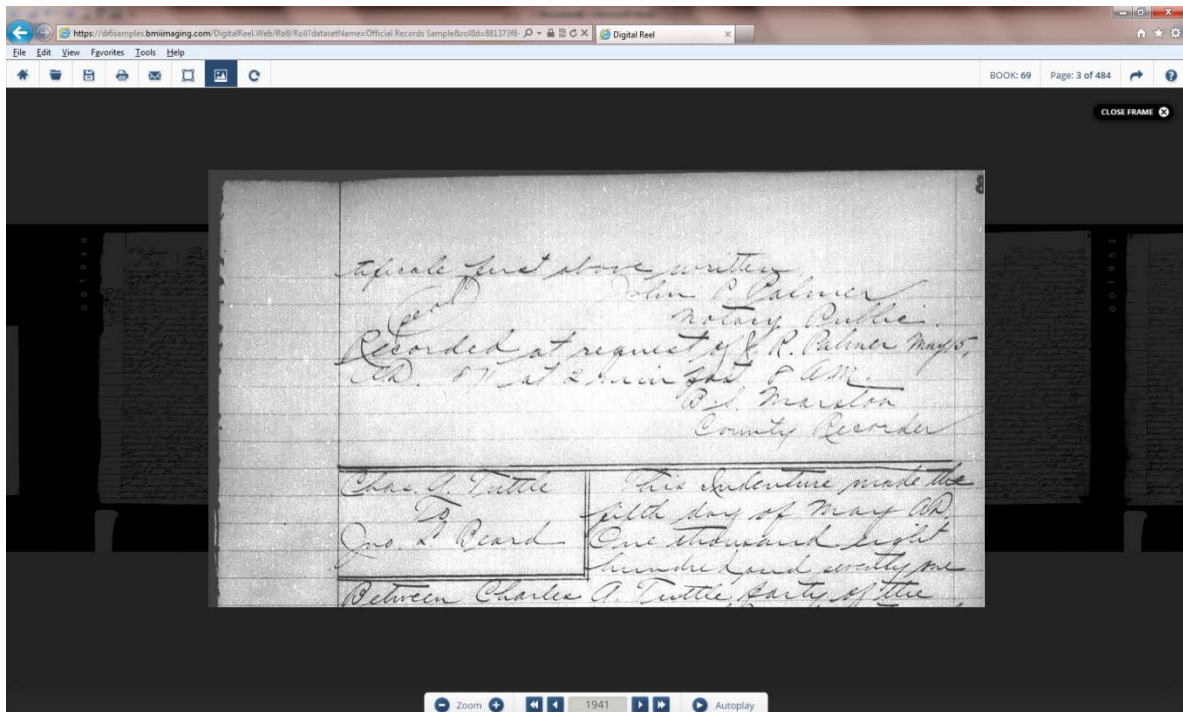 https://dr6samples.bmiimaging.com/DigitalReel.Web/Roll/Roll?datasetName=Official Records Sample&rollId=881373f8-
Digital Reel
File Edit View Favorites Tools Help
BOOK: 69 Page: 3 of 484
CLOSE FRAME
8
tificate first above written
John R Palmer
Notary Public.
Recorded at request of J R. Palmer May 15,
AD. 871 at 2 min past 8 AM.
B.S. Marston
County Recorder
Chas. A. Tuttle
To
Jno. L Beard
This Indenture made the
fifth day of May AD
One thousand eight
hundred and seventy one
Between Charles A. Tuttle party of the
Zoom 1941 Autoplay